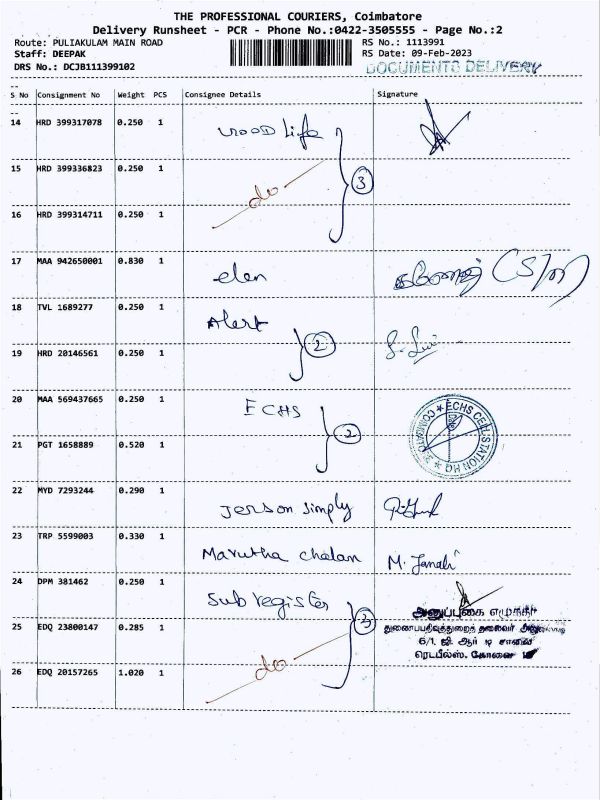 THE PROFESSIONAL COURIERS, Coimbatore
Delivery Runsheet - PCR - Phone No.:0422-3505555 - Page No.:2
Route: PULIAKULAM MAIN ROAD RS No.: 1113991
Staff: DEEPAK RS Date: 09-Feb-2023
DRS No.: DCJB111399102 DOCUMENTS DELIVERY
S No Consignment No Weight PCS Consignee Details Signature
14 HRD 399317078 0.250 1 Wood Life
15 HRD 399336823 0.250 1 do 3
16 HRD 399314711 0.250 1
17 MAA 942650001 0.830 1 elen
18 TVL 1689277 0.250 1 Alert
19 HRD 20146561 0.250 1 2
20 MAA 569437665 0.250 1 ECHS
ECHS CELL STATION HQ COIMBATORE
21 PGT 1658889 0.520 1 2
22 MYD 7293244 0.290 1 Jerson simply
23 TRP 5599003 0.330 1 Marutha chalam M. Janaki
24 DPM 381462 0.250 1 Sub register
25 EDQ 23800147 0.285 1 3
துணைப்பதிவுத்துறைத் தலைவர்
6/1, ஜி. ஆர் டி சாலை
ரெடபீல்ஸ், கோவை
26 EDQ 20157265 1.020 1 do